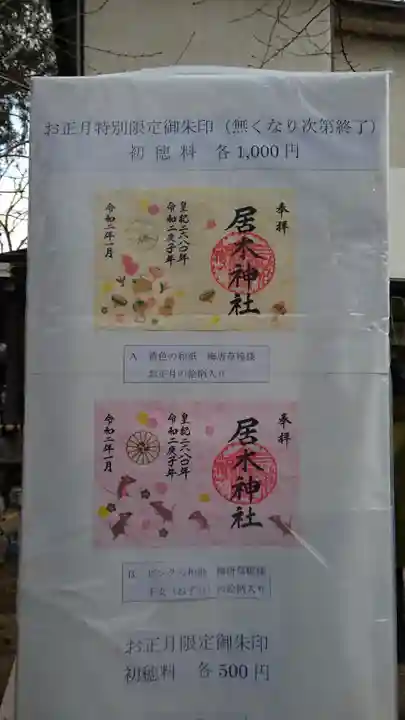 お正月特別限定御朱印（無くなり次第終了）
初穂料　各1,000円
奉拝
居木神社
皇紀二六八〇年
令和二庚子年
令和二年一月
A　黄色の和紙　梅唐草模様
お正月の絵柄入り
奉拝
居木神社
皇紀二六八〇年
令和二庚子年
令和二年一月
B　ピンクの和紙　梅唐草模様
干支（ねずみ）の絵柄入り
お正月限定御朱印
初穂料　各500円